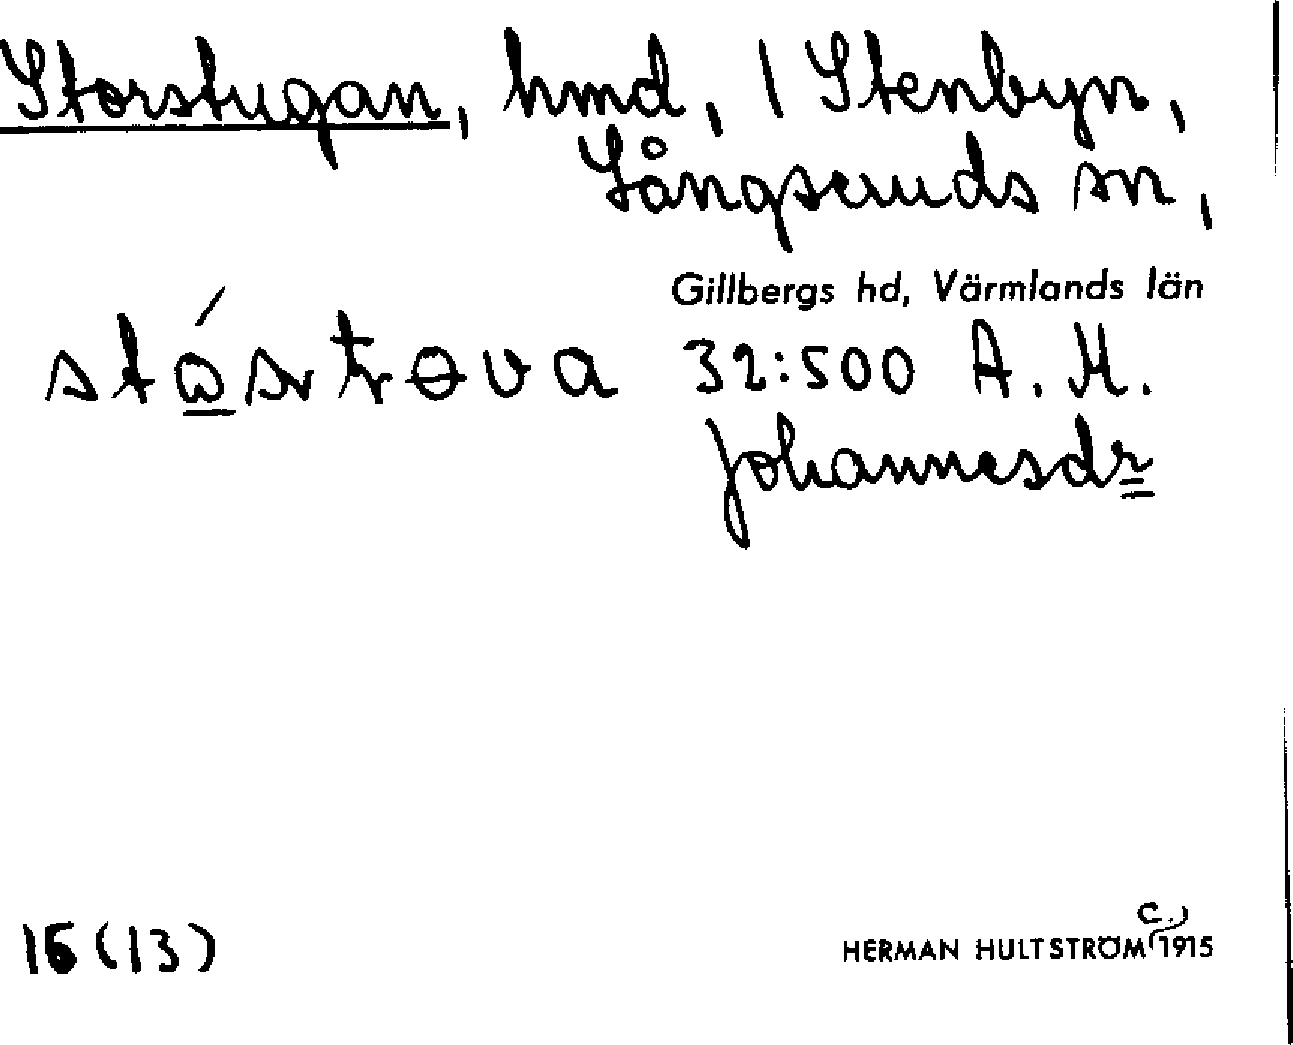 Storstugan, hmd, 1 Stenbyn,
Långseruds sn,
Gillbergs hd, Värmlands län
32:500 A. M.
Johannesdr
16(13)
HERMAN HULTSTRÖM (c.) 1915